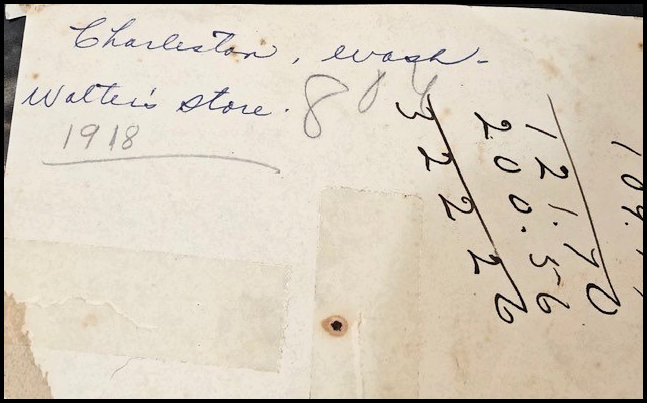 Charleston, wash-
Walter's store.
1918
121.70
200.56
322 26